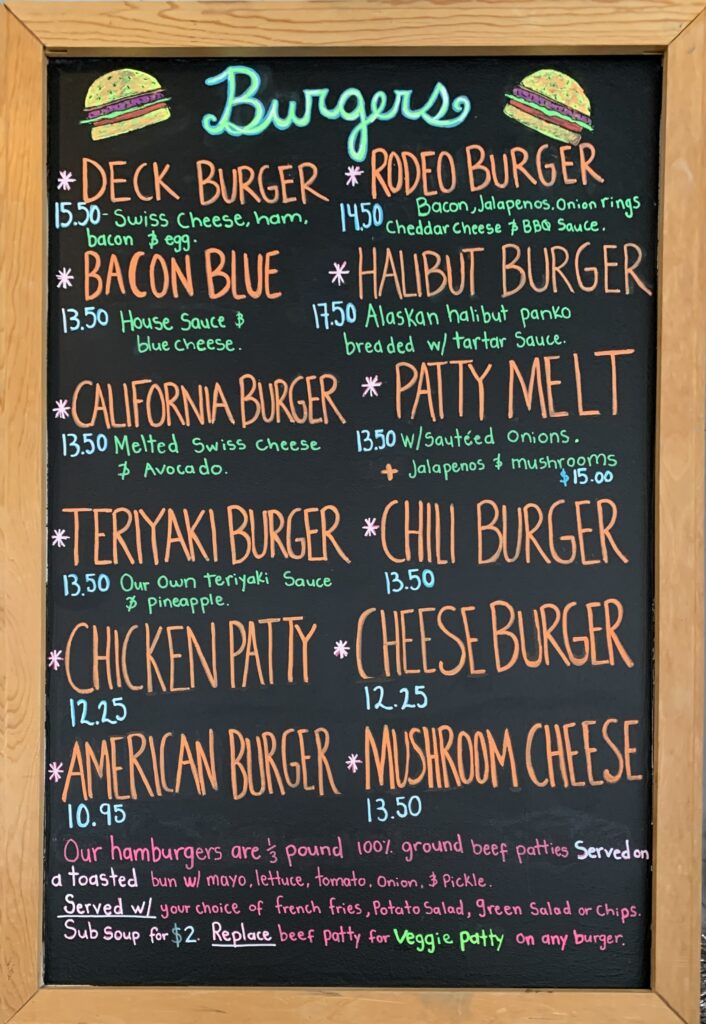 Burgers
* DECK BURGER
15.50 - Swiss Cheese, ham,
bacon & egg.
* RODEO BURGER
14.50 Bacon, Jalapenos, Onion rings
Cheddar Cheese & BBQ Sauce.
* BACON BLUE
13.50 House Sauce &
blue cheese.
* HALIBUT BURGER
17.50 Alaskan halibut panko
breaded w/ tartar Sauce.
* CALIFORNIA BURGER
13.50 Melted Swiss Cheese
& Avocado.
* PATTY MELT
13.50 w/Sautéed Onions.
+ Jalapenos & mushrooms
$15.00
* TERIYAKI BURGER
13.50 Our Own teriyaki Sauce
& pineapple.
* CHILI BURGER
13.50
* CHICKEN PATTY
12.25
* CHEESE BURGER
12.25
* AMERICAN BURGER
10.95
* MUSHROOM CHEESE
13.50
Our hamburgers are 1/3 pound 100% ground beef patties Served on
a toasted bun w/ mayo, lettuce, tomato, Onion, & Pickle.
Served w/ your choice of french fries, Potato Salad, green Salad or Chips.
Sub Soup for $2. Replace beef patty for Veggie patty on any burger.